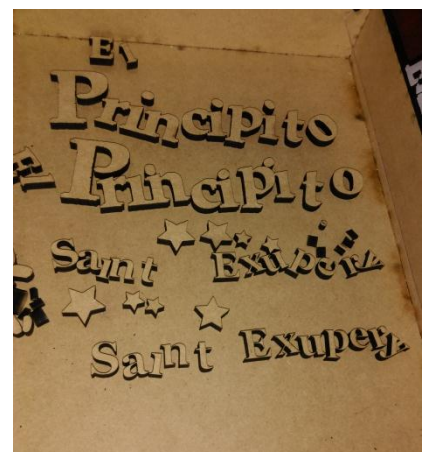 El
Principito
El
Principito
Saint Exupery
Saint Exupery